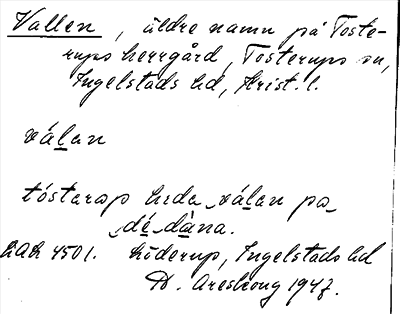 Vallen, äldre namn på Toste-
rups herrgård, Tosterups sn,
Ingelstads hd, Krist. l.
válan
tóstarap hida válan pa
dé dàna.
LAL 4501. Löderup, Ingelstads hd
D. Areskoug 1947.